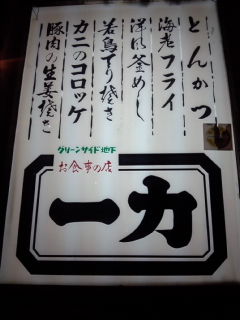 とんかつ
海老フライ
洋風釜めし
若鳥てり焼き
カニのコロッケ
豚肉の生姜焼き
グリーンサイド地下
お食事の店
一力